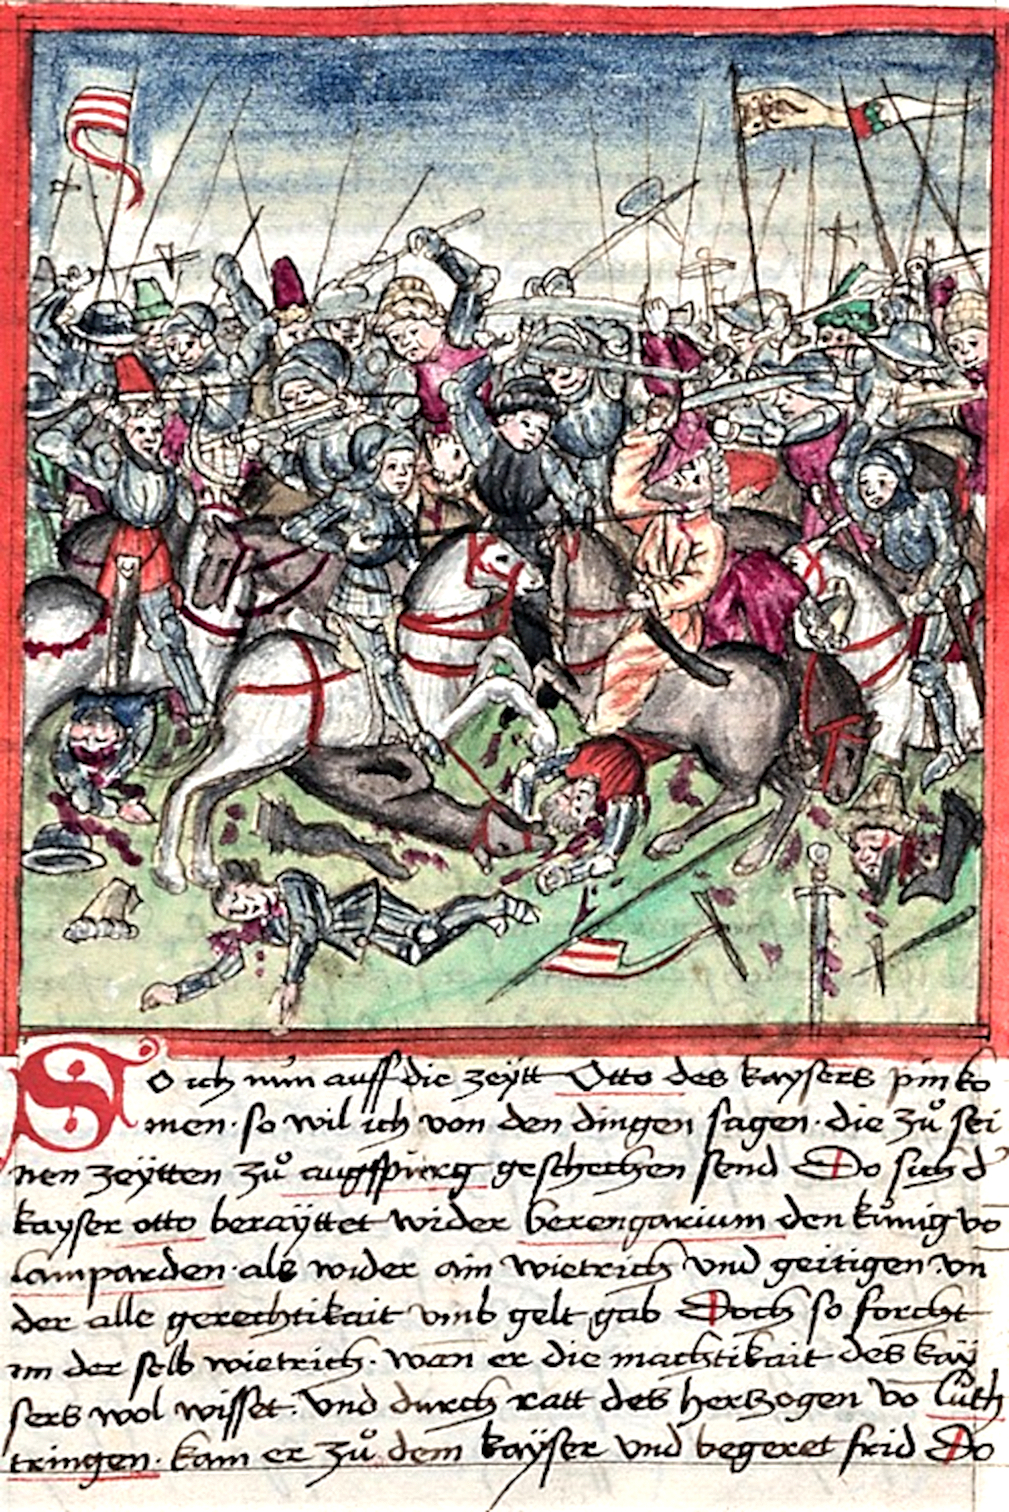 So ich nun auff die zeÿtt Otto des kaysers pin ko
men · so wil ich von den dingen sagen · die zů sei
nen zeÿtten zů augspurg geschechen send Do sich d
kayser otto beraÿttet wider berengarium den künig vo
lamparden · als wider ain wietrich vnd geitigen · vn
der alle gerechtikait vmb gelt gab Doch so forcht
im der selb wietrich · wan er die machtikait des kaÿ
sers wol wisset · vnd durch ratt des hertzogen vo luth
tringen · kam er zů dem kaÿser vnd begeret frid Do